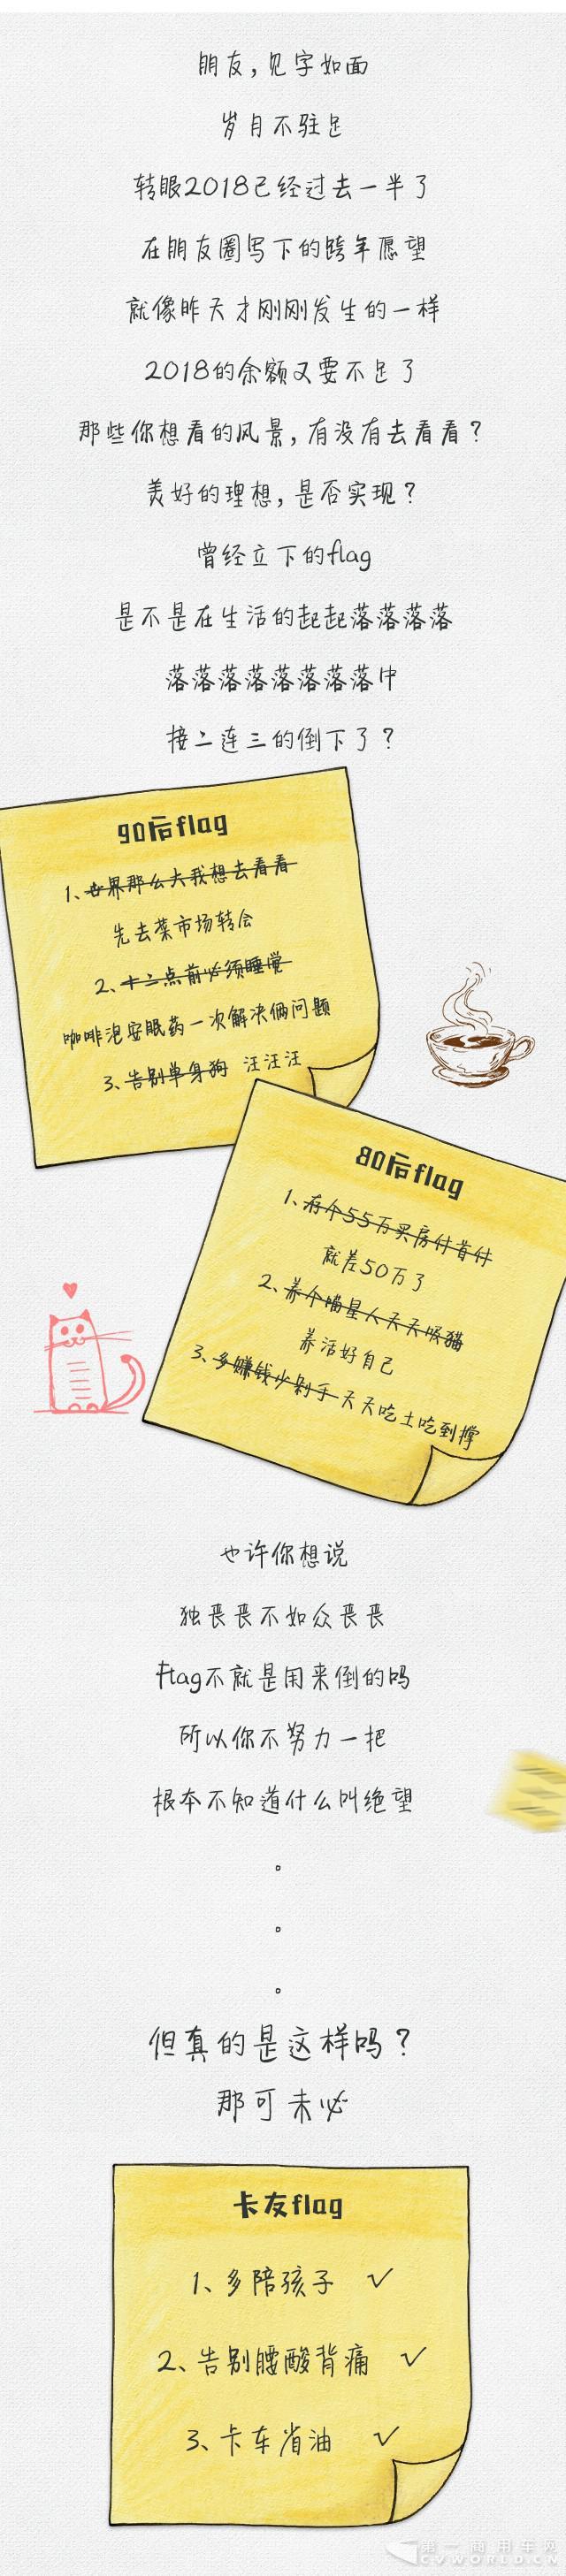 朋友，见字如面
岁月不驻足
转眼2018已经过去一半了
在朋友圈写下的跨年愿望
就像昨天才刚刚发生的一样
2018的余额又要不足了
那些你想看的风景，有没有去看看？
美好的理想，是否实现？
曾经立下的flag
是不是在生活的起起落落落落
落落落落落落落落中
接二连三的倒下了？
90后flag
1、世界那么大我想去看看
先去菜市场转会
2、十二点前必须睡觉
咖啡泡安眠药一次解决俩问题
3、告别单身狗 汪汪汪
80后flag
1、存个55万买房付首付
就差50万了
2、养个喵星人天天吸猫
养活好自己
3、多赚钱少剁手 天天吃土吃到撑
也许你想说
独丧丧不如众丧丧
flag不就是用来倒的吗
所以你不努力一把
根本不知道什么叫绝望
。
。
。
但真的是这样吗？
那可未必
卡友flag
1、多陪孩子 ✓
2、告别腰酸背痛 ✓
3、卡车省油 ✓
第一商用车网
CVWORLD.CN